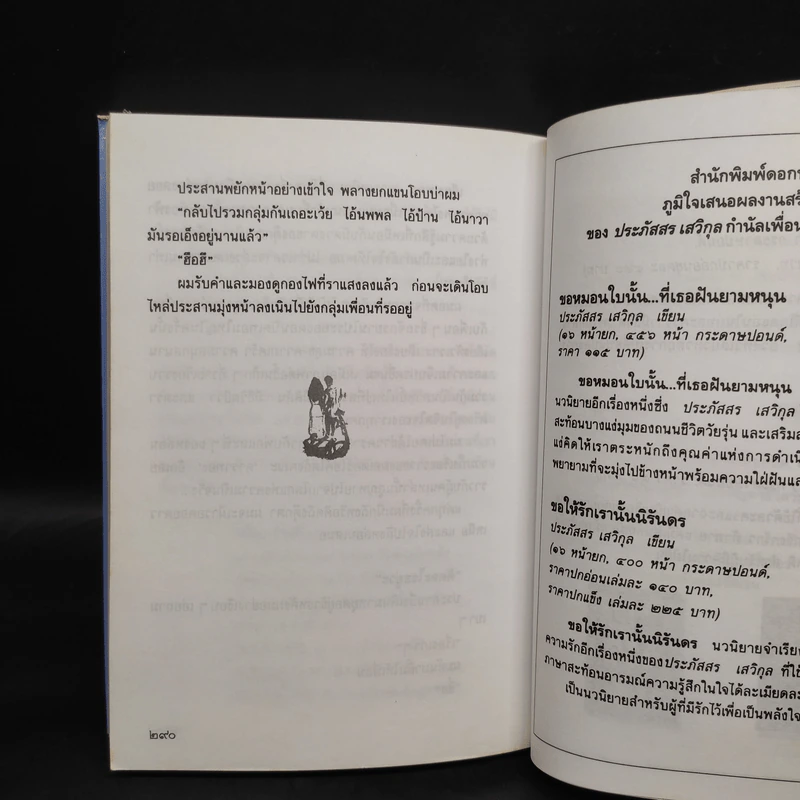 ประสานพยักหน้าอย่างเข้าใจ พลางยกแขนโอบบ่าผม
“กลับไปรวมกลุ่มกันเถอะเว้ย ไอ้นพพล ไอ้ป้าน ไอ้นาวา
มันรอเอ็งอยู่นานแล้ว”
“ฮือฮึ”
ผมรับคำและมองดูกองไฟที่ราแสงลงแล้ว ก่อนจะเดินโอบ
ไหล่ประสานมุ่งหน้าลงเนินไปยังกลุ่มเพื่อนที่รออยู่
๒๙๐
สำนักพิมพ์ดอก
ภูมิใจเสนอผลงาน
ของ ประภัสสร เสวิกุล กำนัลเพื่อน
ขอหมอนใบนั้น...ที่เธอฝันยามหนุน
ประภัสสร เสวิกุล เขียน
(๑๖ หน้ายก, ๔๕๖ หน้า กระดาษปอนด์,
ราคา ๑๑๕ บาท)
ขอหมอนใบนั้น...ที่เธอฝันยามหนุน
นวนิยายอีกเรื่องหนึ่งซึ่ง ประภัสสร เสวิกุล
สะท้อนบางแง่มุมของถนนชีวิตวัยรุ่น และเสริม
แง่คิดให้เราตระหนักถึงคุณค่าแห่งการดำเนิ
พยายามที่จะมุ่งไปข้างหน้าพร้อมความใฝ่ฝันแล
ขอให้รักเรานั้นนิรันดร
ประภัสสร เสวิกุล เขียน
(๑๖ หน้ายก, ๔๐๐ หน้า กระดาษปอนด์,
ราคาปกอ่อนเล่มละ ๑๔๐ บาท,
ราคาปกแข็ง เล่มละ ๒๒๕ บาท)
ขอให้รักเรานั้นนิรันดร นวนิยายจำเรีย
ความรักอีกเรื่องหนึ่งของประภัสสร เสวิกุล ที่ใช้
ภาษาสะท้อนอารมณ์ความรู้สึกในใจได้ละเมียดละ
เป็นนวนิยายสำหรับผู้ที่มีรักไว้เพื่อเป็นพลังใจ